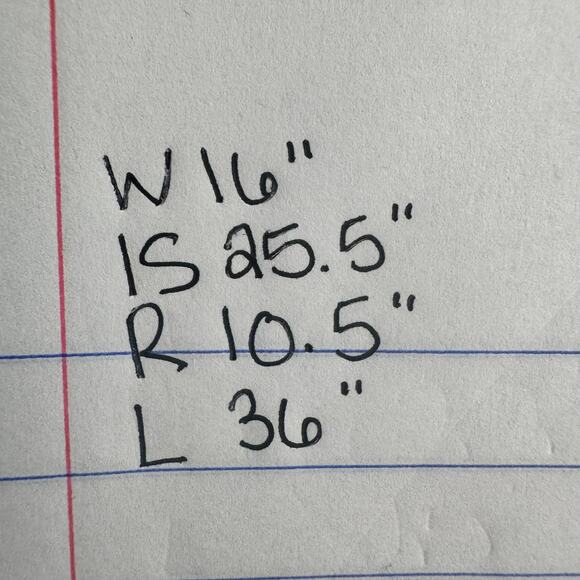 W 16"
IS 25.5"
R 10.5"
L 36"